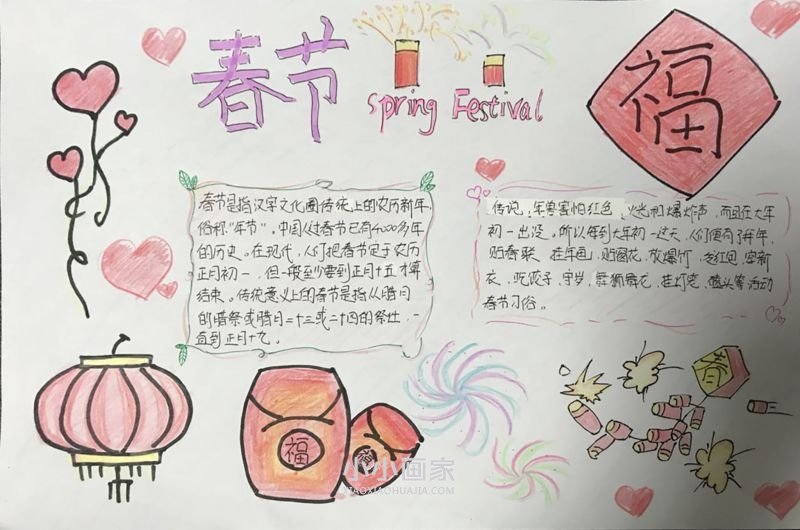 春节
Spring Festival
福
春节是指汉字文化圈传统上的农历新年,
俗称“年节”。中国人过春节已有4000多年
的历史。在现代,人们把春节定于农历
正月初一,但一般至少要到正月十五才算
结束。传统意义上的春节是指从腊月
的腊祭或腊月二十三或二十四的祭灶,一
直到正月十九。
传说,年兽害怕红色、火光和爆炸声,而且在大年
初一出没。所以每到大年初一这天,人们便有了拜年、
贴春联、挂年画、贴窗花、放爆竹、发红包、穿新
衣、吃饺子、守岁、舞狮舞龙、挂灯笼、磕头等活动
春节习俗。
福
福
春
小小画家
XIAOXIAOHUAJIA.COM